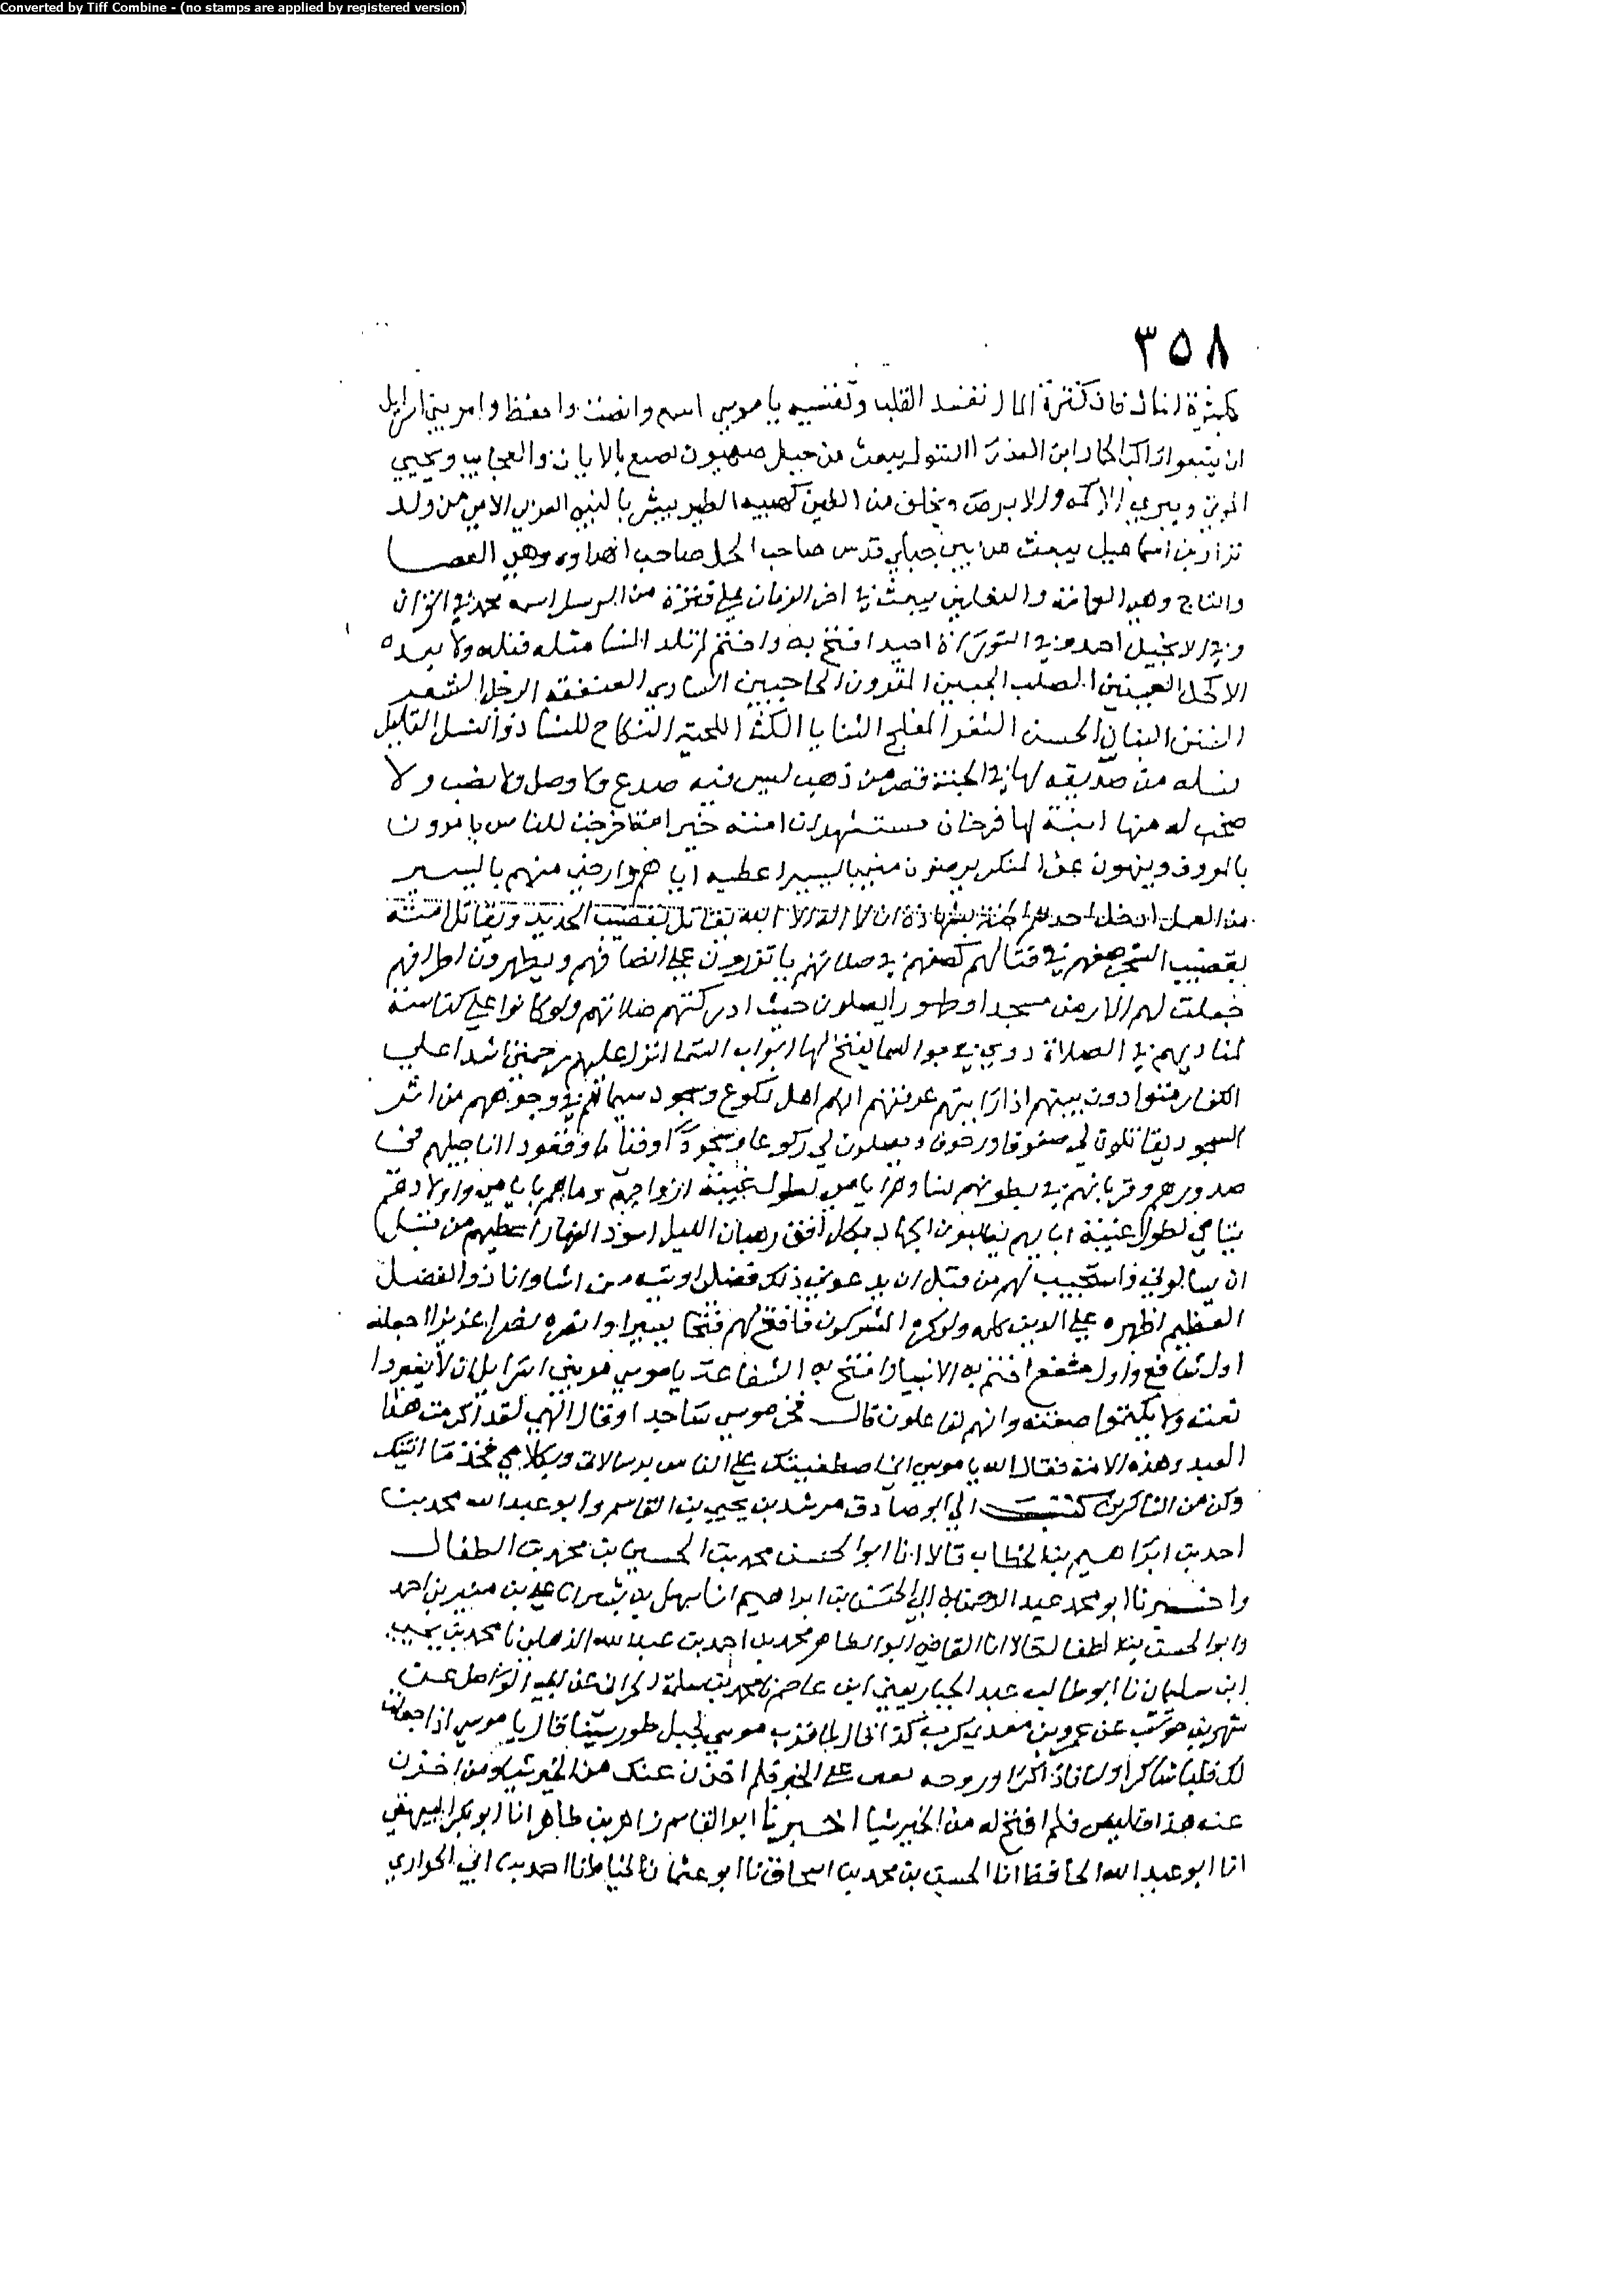 Converted by Tiff Combine - (no stamps are applied by registered version)
٣٥٨
كثرة المال فان كثرة المال تفسد القلب وتقسيه يا موسى اسمع وانصت واحفظ وامر بني اسرايل
ان يتبعوا راكب الحمار ابن العذرا البتول يبعث من جبل صهيون يصنع بالايات والعجايب ويحيي
الموتى ويبري الاكمه والابرص ويخلق من الطين كهيية الطير يبشر بالنبي العربي الامين من ولد
نزار بن اسماعيل يبعث من بين جبلي قدس صاحب الجمل صاحب الهراوه وهي العصا
والتاج وهي العمامة والنعلين يبعث في اخر الزمان على فترة من الرسل اسمه محمد في القران
وفي الانجيل احمد وفي التوراة احيد افتح به واختم لم تلد النسا مثله قبله ولا بعده
الاكحل العينين الصلت الجبين المقرون الحاجبين البادي العنفقه الرجل الشعر
الشثن البنان الحسن الثغر المفلج الثنايا الكث اللحية النكاح للنسا ذو النسل القليل
نسله من صديقه لها في الجنة قصر من ذهب ليس فيه صدع ولا وصل ولا نصب ولا
صخب له منها ابنة لها فرخان مستشهدان امته خير امة اخرجت للناس يامرون
بالمعروف وينهون عن المنكر يرضون مني باليسير اعطيه اياهم وارضى منهم باليسير
من العمل ادخل احدهم الجنة بشهادة ان لا اله الا الله يقاتل بقضيب الحديد وتقاتل امته
بقضيب الشجر صفهم في قتالهم كصفهم في صلاتهم ياتزرون على انصافهم ويطهرون اطرافهم
جعلت لهم الارض مسجدا وطهورا يصلون حيث ادركتهم صلاتهم ولو كانوا على كناسة
لمناديهم في الصلاة دوي في جو السما يفتح لها ابواب السما انزل عليهم رحمتي اشدا على
الكفار رحما دون بينهم اذا رايتهم عرفتهم انهم اهل ركوع وسجود سيماهم في وجوههم من اثر
السجود يقاتلون لي صفوفا وزحوفا ويصلون لي ركوعا وسجودا وقياما وقعودا اناجيلهم في
صدورهم وقربانهم في بطونهم نساوهم ايامى لطول غيبة ازواجهم وما هم بايامى واولادهم
يتامى لطول غيبة ابايهم يطلبون الجهاد بكل افق رهبان الليل اسود النهار اعطيهم من قبل
ان يسالوني واستجيب لهم من قبل ان يدعوني ذلك فضلي اوتيه من اشا وانا ذو الفضل
العظيم اظهره على الدين كله ولو كره المشركون فافتح لهم فتحا يسيرا وانصره نصرا عزيزا اجعله
اول شافع واول مشفع اختم به الانبيا وافتح به الشفاعة يا موسى مر بني اسرايل ان لا يغيروا
نعته ولا يكتموا صفته وانهم لفاعلون قال فخر موسى ساجدا وقال الهي لقد اكرمت هذا
العبد وهذه الامة فقال الله يا موسى اني اصطفيتك على الناس برسالاتي وبكلامي فخذ ما اتيتك
وكن من الشاكرين كتب الي ابو صادق مرشد بن يحيى بن القاسم وابو عبد الله محمد بن
احمد بن ابراهيم بن الخطاب قالا انا ابو الحسن محمد بن الحسين بن محمد بن الطفال
واخبرنا ابو محمد عبد الرحمن بن ابي الحسن بن ابراهيم انا سهل بن بشر انا علي بن منير بن احمد
وابو الحسن بن الطفال قالا انا القاضي ابو الطاهر محمد بن احمد بن عبد الله الذهلي نا محمد بن يحيى
ابن سليمان نا ابو طالب عبد الجبار يعني ابن عاصم نا محمد بن سلمة الحراني عن ابي الواصل عن
شهر بن حوشب عن عمرو بن معدي كرب كذا قال لما قرب موسى لجبل طور سينا قال يا موسى اذا جعلت
لك قلبا شاكرا ولسانا ذاكرا وزوجه تعين على الخير فلم اخزن عنك من الخير شيا ومن اخزن
عنه هذا فليس فلم افتح له من الخير شيا اخبرنا ابو القاسم زاهر بن طاهر انا ابو بكر البيهقي
انا ابو عبد الله الحافظ انا الحسن بن محمد بن اسحاق نا ابو عثمان الخياط نا احمد بن ابي الحواري